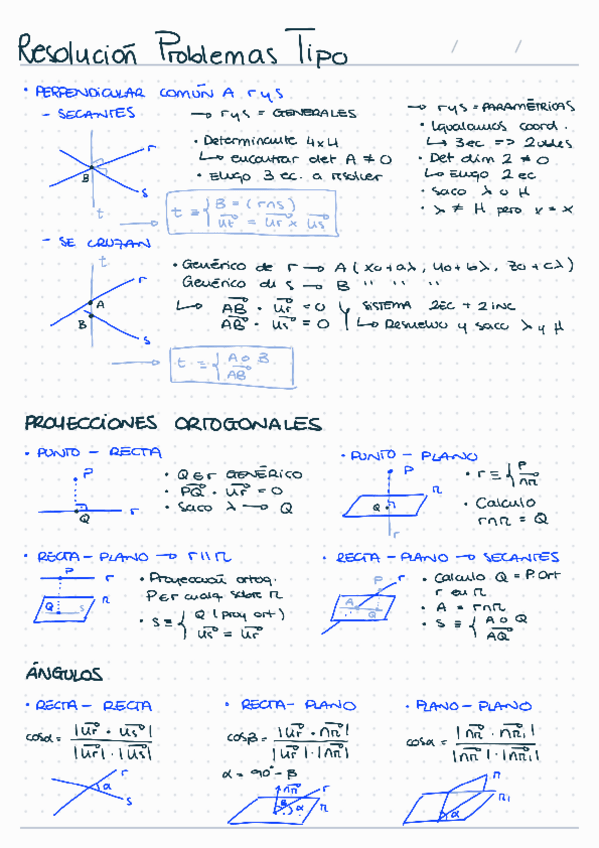 Resolución Problemas Tipo
/ /
• PERPENDICULAR COMÚN A r y s
- SECANTES
→ r y s = GENERALES
• Determinante 4x4
↳ encontrar det A ≠ 0
• Elijo 3 ec. a resolver
→ r y s = PARAMÉTRICAS
• Igualamos coord.
↳ 3 ec => 2 uds
• Det dim 2 ≠ 0
↳ Elijo 2 ec
• Saco λ o μ
• λ ≠ μ pero x = x
r
B
s
t
t ≡ { B = (r∩s)
ut→ = ur→ x us→
- SE CRUZAN
t
r
A
B
s
• Genérico de r → A (x0+aλ, y0+bλ, z0+cλ)
Genérico de s → B " " "
↳ AB→ · ur→ = 0 } SISTEMA 2EC + 2 inc
AB→ · us→ = 0 ↳ Resuelvo y saco λ y μ
t ≡ { A o B
AB→
PROYECCIONES ORTOGONALES
• PUNTO - RECTA
P
Q
r
• Q ∈ r GENÉRICO
• PQ→ · ur→ = 0
• Saco λ → Q
• PUNTO - PLANO
P
π
Q
r
• r ≡ { P
nπ→
• Calculo
r∩π = Q
• RECTA - PLANO → r || π
P
r
π
Q
s
• Proyección ortog.
P ∈ r cualq. sobre π
• s ≡ { Q (proy ort)
us→ = ur→
• RECTA - PLANO → SECANTES
P
r
A
Q
π
• Calculo Q = P. Ort
r en π
• A = r∩π
• s ≡ { A o Q
AQ→
ÁNGULOS
• RECTA - RECTA
cosα = |ur→ · us→| / |ur→| · |us→|
r
α
s
• RECTA - PLANO
cosβ = |ur→ · nπ→| / |ur→| · |nπ→|
α = 90° - β
nπ→
r
β
α
π
• PLANO - PLANO
cosα = |nπ→ · nπ1→| / |nπ→| · |nπ1→|
π
π1
α